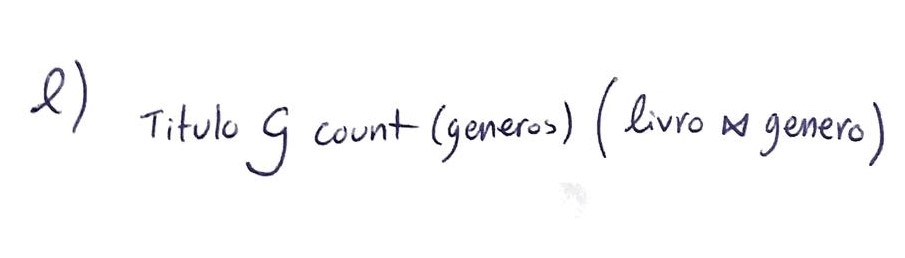 l) Titulo G count (generos) (livro ⋈ genero)